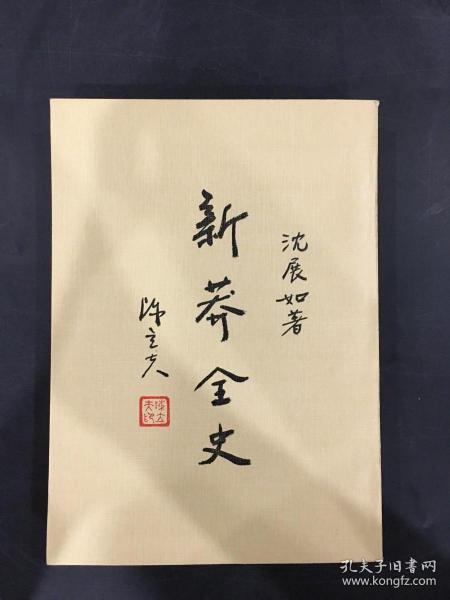 沈展如著
新莽全史
陳立夫
陳立夫印
孔夫子旧书网
www.kongfz.com